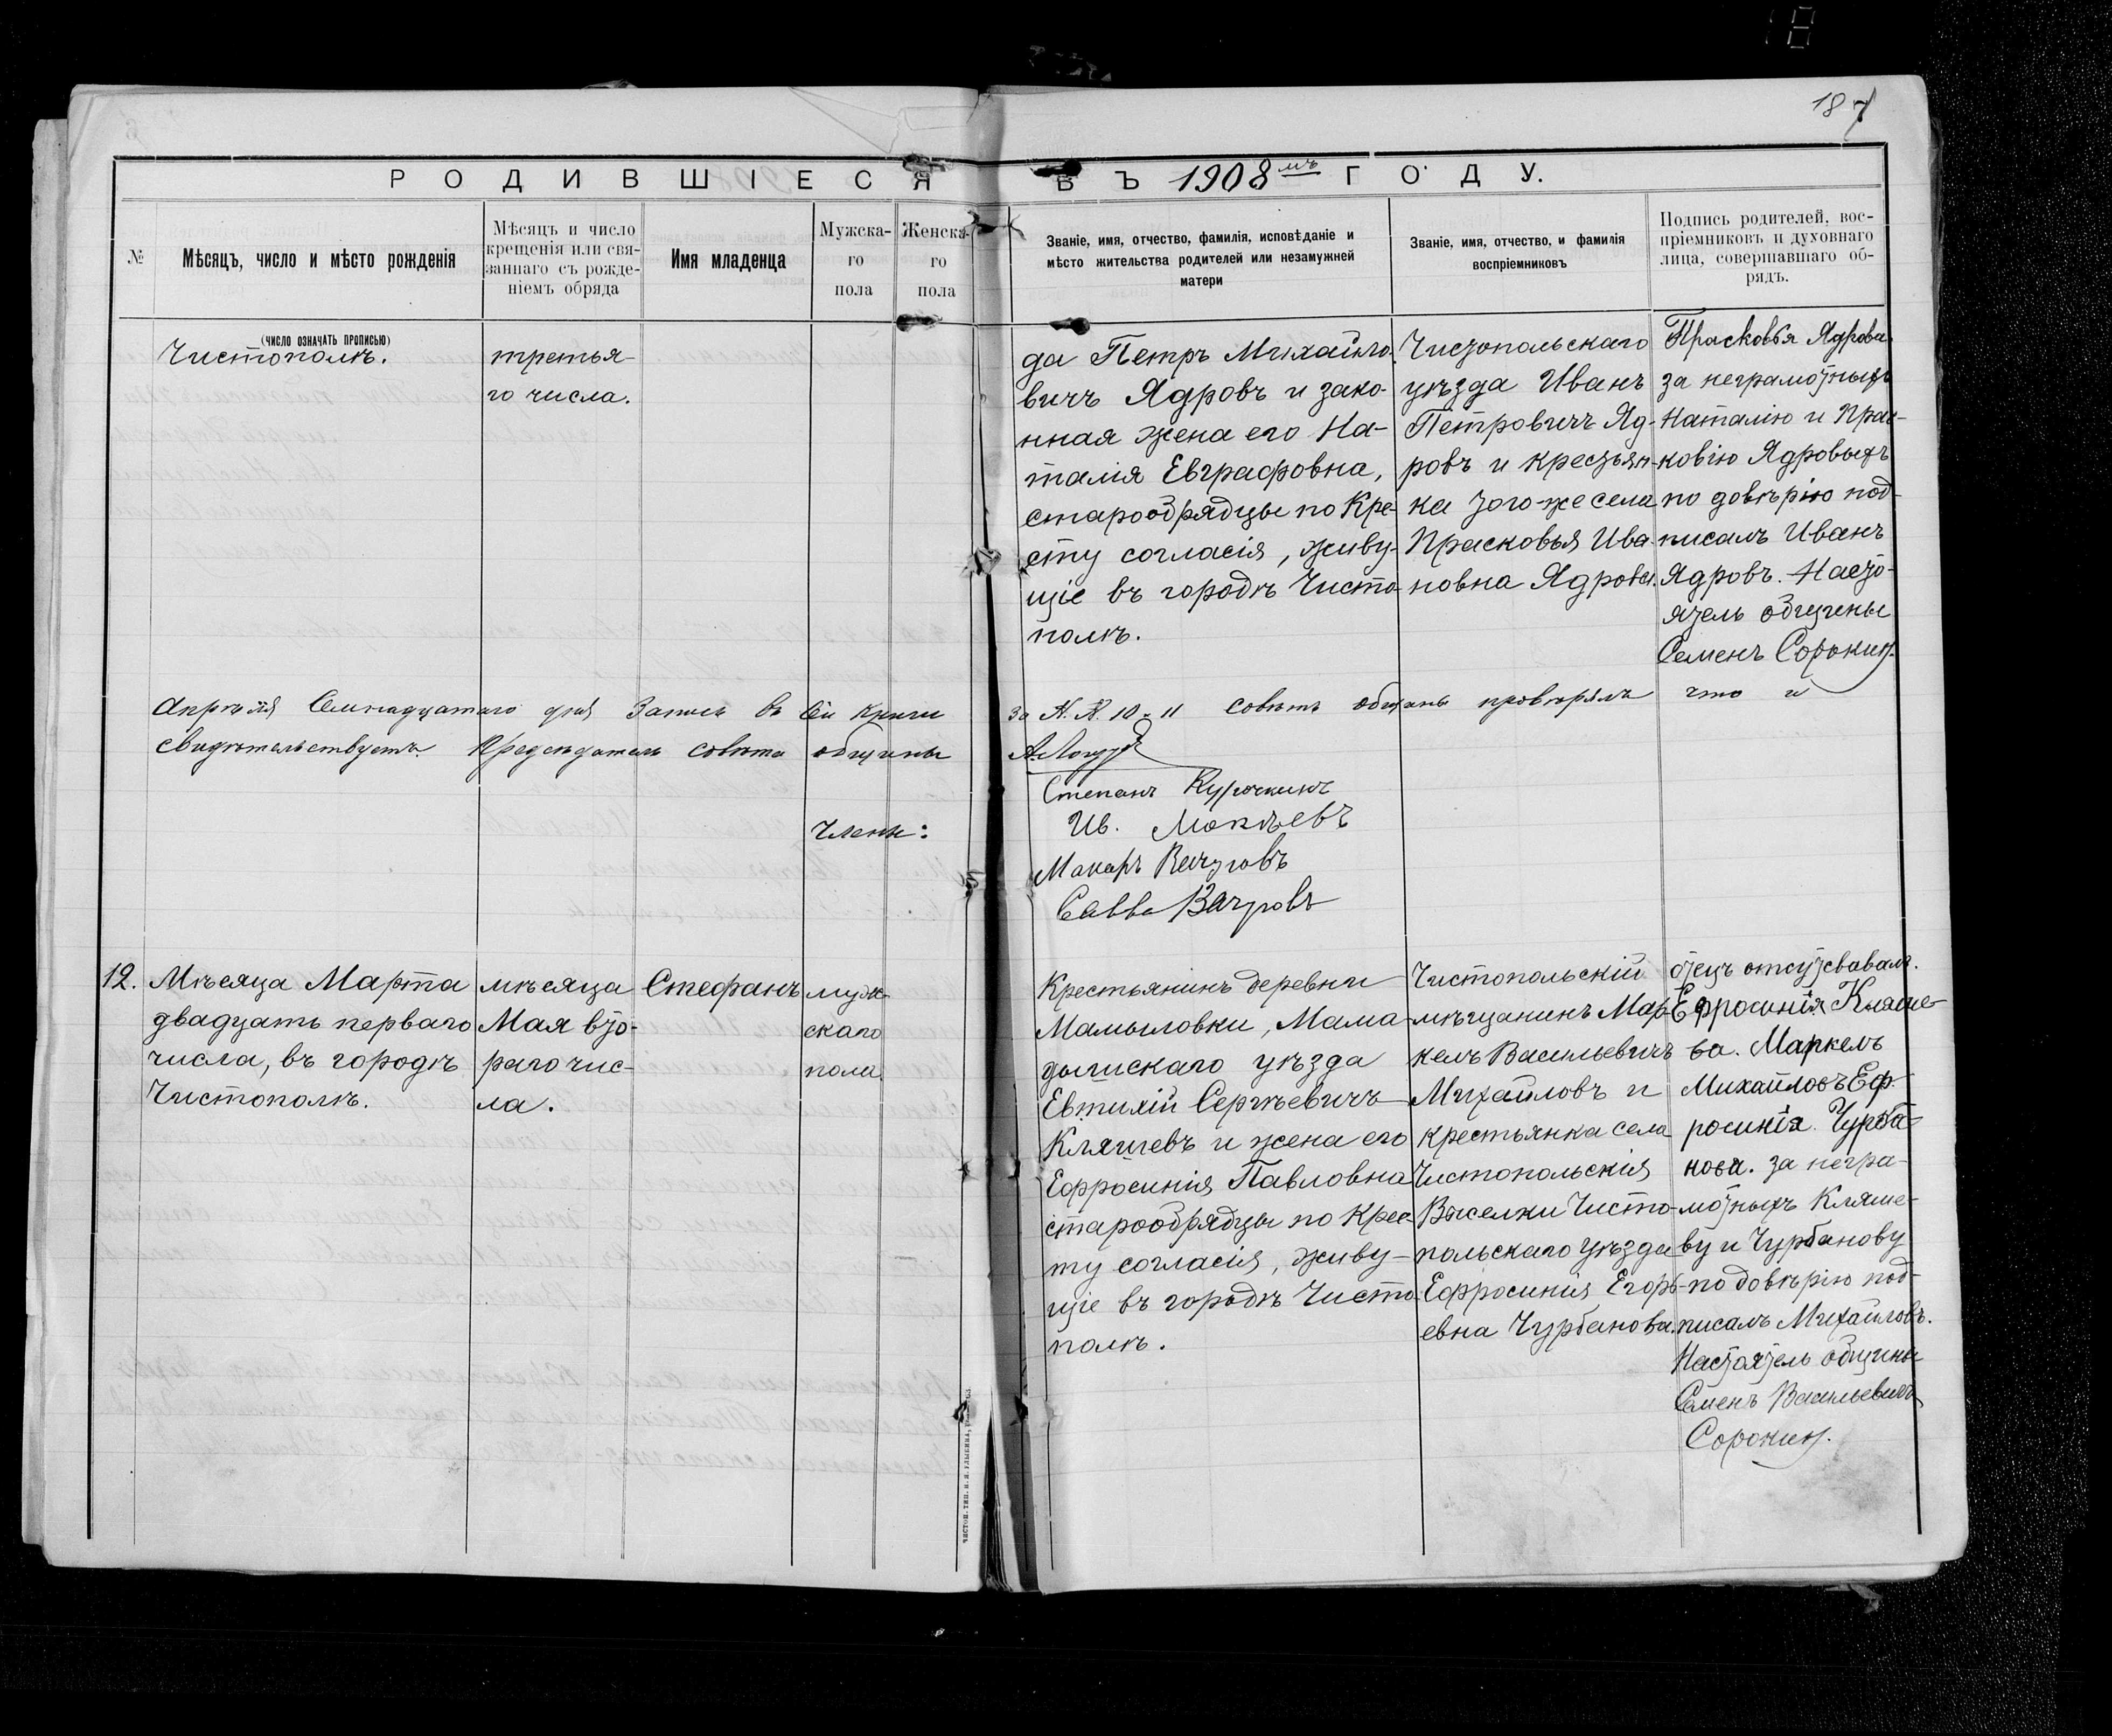 187
РОДИВШІЕСЯ ВЪ 1908мъ ГОДУ.
№
Мѣсяцъ, число и мѣсто рожденія
(число означать прописью)
Мѣсяцъ и число
крещенія или свя-
заннаго съ рожде-
ніемъ обряда
Имя младенца
Мужска-
го
пола
Женска-
го
пола
Званіе, имя, отчество, фамилія, исповѣданіе и
мѣсто жительства родителей или незамужней
матери
Званіе, имя, отчество, и фамилія
воспріемниковъ
Подпись родителей, вос-
пріемниковъ и духовнаго
лица, совершавшаго об-
рядъ.
Чистополѣ.
третья-
го числа.
да Петръ Михайло-
вичъ Ядровъ и зако-
нная жена его На-
талія Евграфовна,
старообрядцы по Кре-
сту согласія, живу-
щіе въ городѣ Чисто-
полѣ.
Чистопольскаго
уѣзда Иванъ
Петровичъ Яд-
ровъ и крестьян-
ка того-же села
Прасковья Ива-
новна Ядрова.
Прасковья Ядрова
за неграмотныхъ
Наталію и Прас-
ковію Ядровыхъ
по довѣрію под-
писалъ Иванъ
Ядровъ. Насто-
ятель общины
Семенъ Сорокин.
Апрѣля Семнадцатаго дня Запись въ сей книги за №.№. 10-11 совѣтъ общины провѣрялъ что и
свидѣтельствуетъ. Предсѣдатель совѣта общины
Степанъ Курочкинъ
Члены:
Ив. Мокѣевъ
Макаръ Вачуговъ
Савва Вачуговъ
12.
Мѣсяца Марта
двадцать перваго
числа, въ городѣ
Чистополѣ.
мѣсяца
Мая вто-
раго чис-
ла.
Стефанъ
муж-
скаго
пола.
Крестьянинъ деревни
Мамыловки, Мама-
дышскаго уѣзда
Евтихій Сергѣевичъ
Кляшевъ и жена его
Ефросинія Павловна
старообрядцы по Крес-
ту согласія, живу-
щіе въ городѣ Чисто-
полѣ.
Чистопольскій
мѣщанинъ Мар-
келъ Васильевичъ
Михайловъ и
крестьянка села
Чистопольскія
Выселки Чисто-
польскаго уѣзда
Ефросинія Егорь-
евна Чурбанова.
отецъ отсутсвовалъ.
Ефросинія Кляше-
ва. Маркелъ
Михайловъ Еф-
росинія Чурба-
нова. за негра-
мотныхъ Кляше-
ву и Чурбанову
по довѣрію под-
писалъ Михайловъ.
Настоятель общины
Семенъ Васильевичъ
Сорокин.